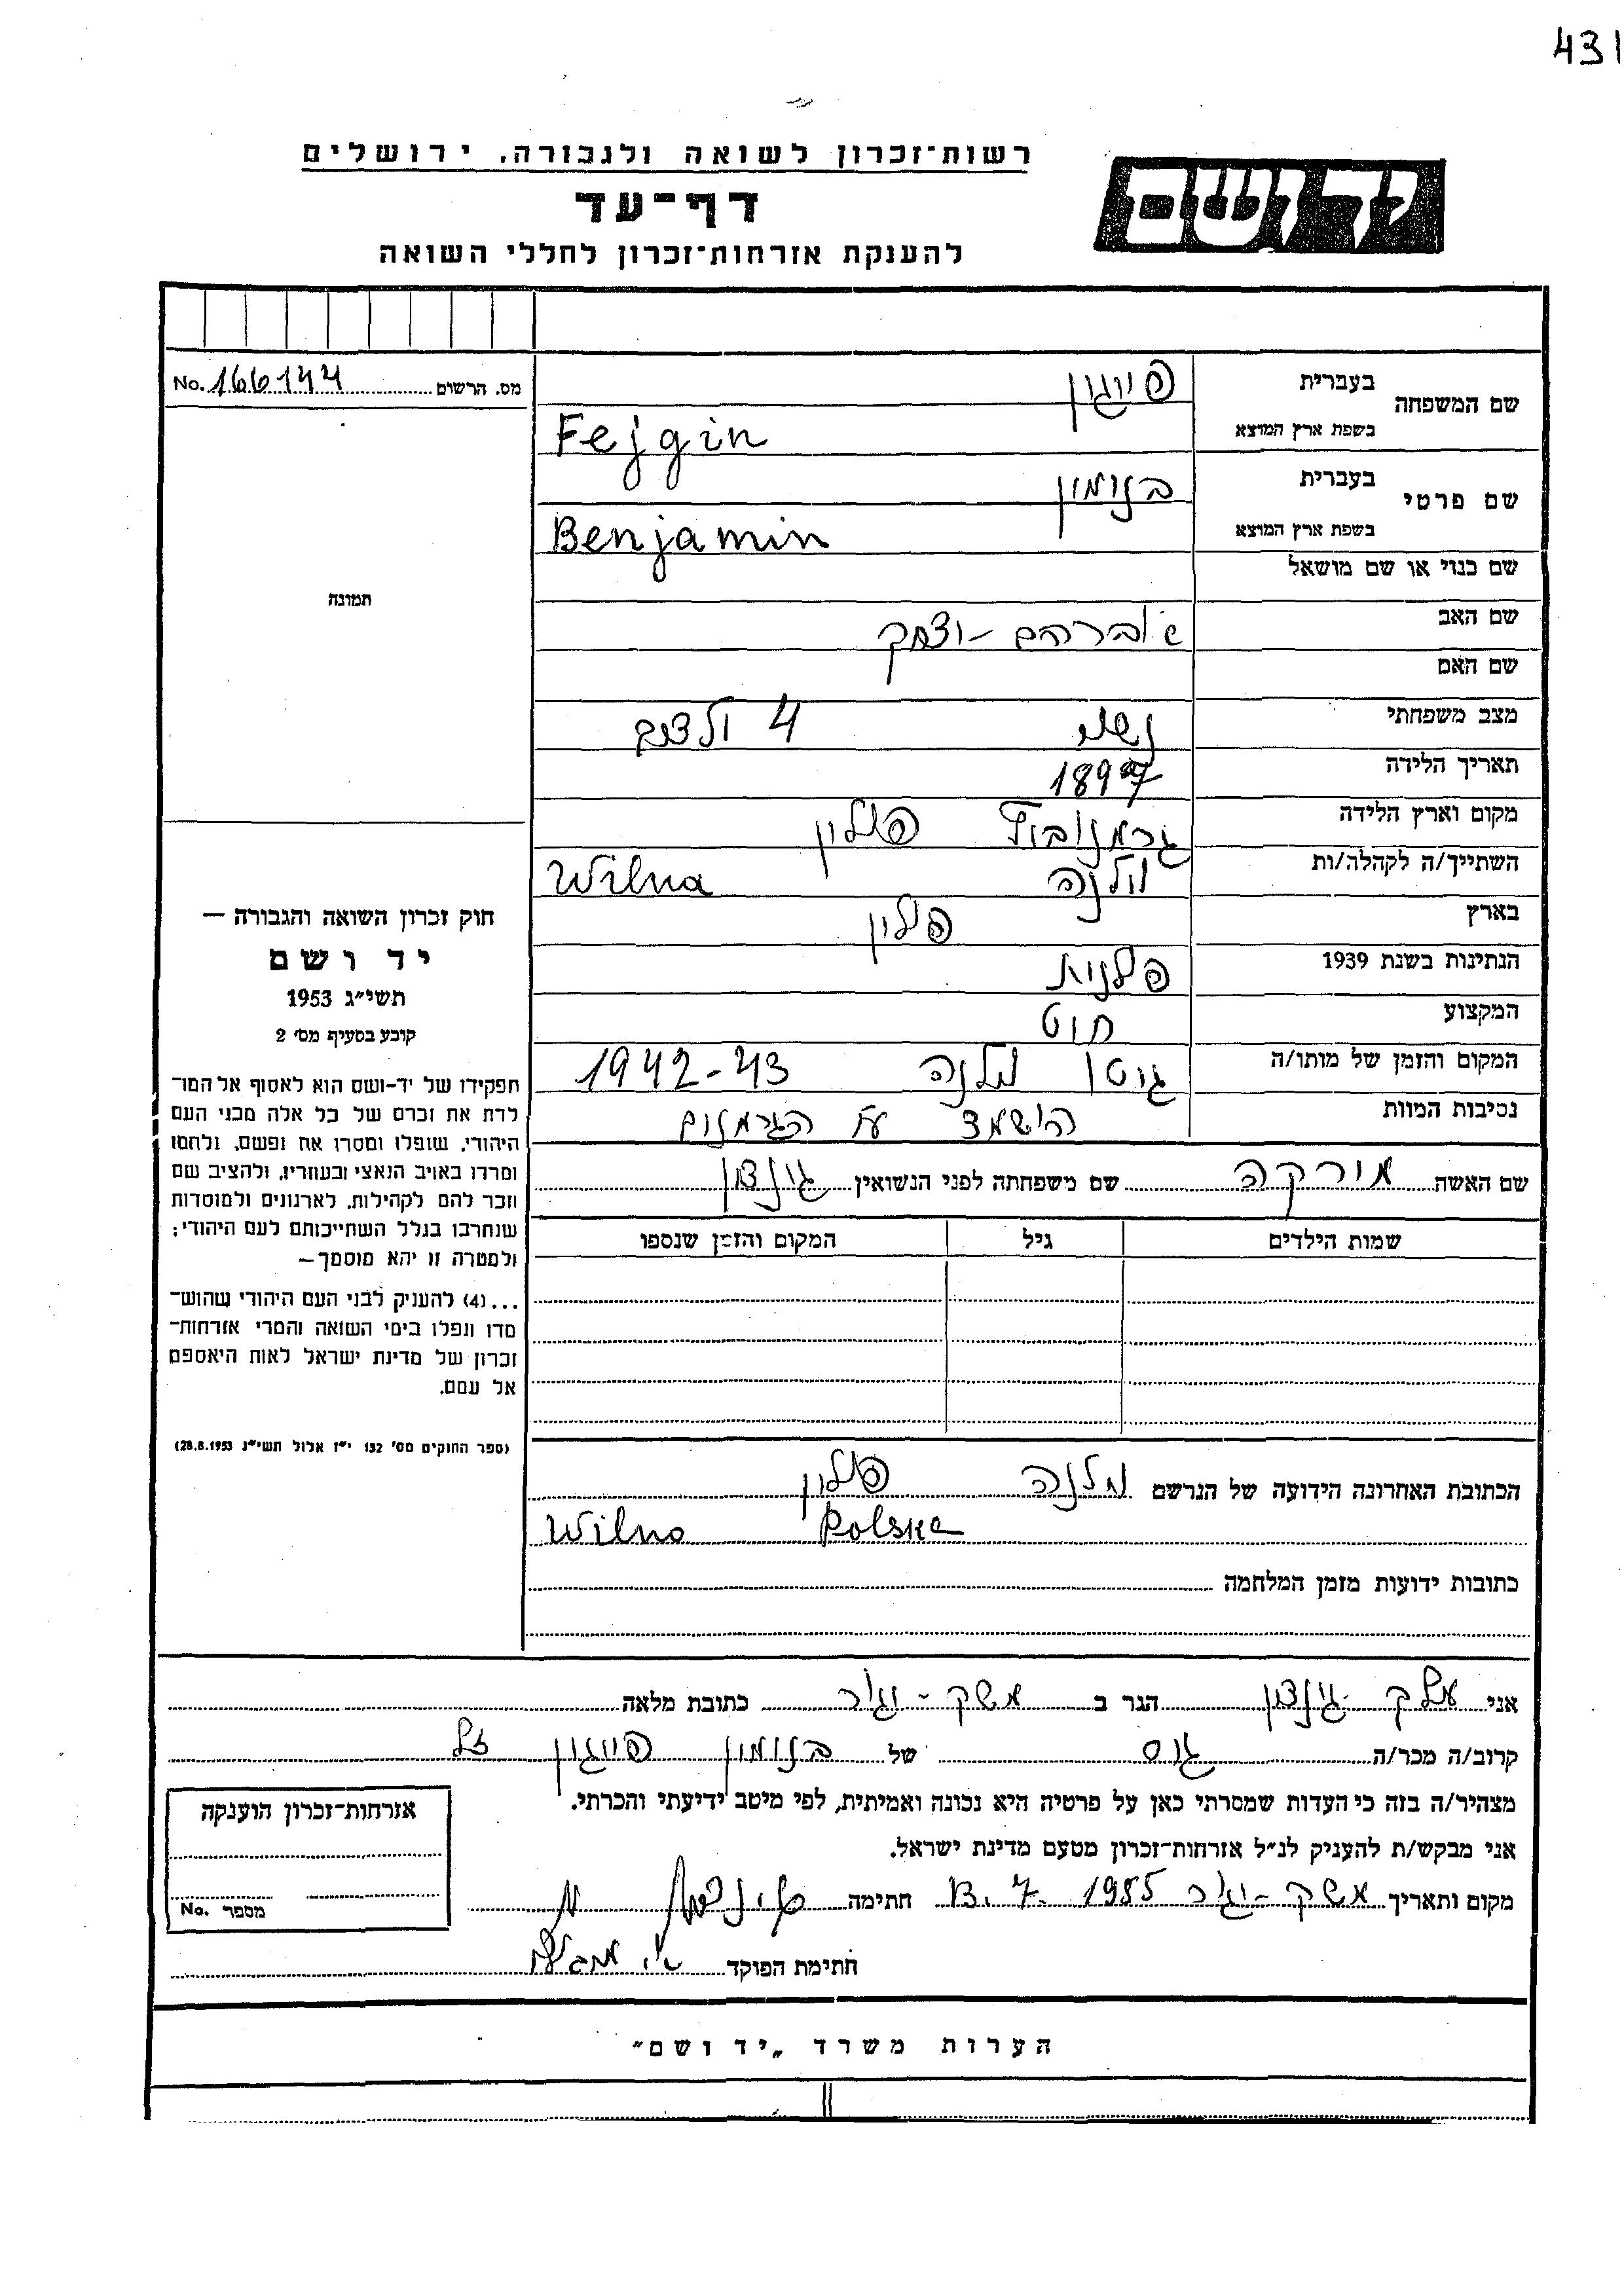 431
רשות־זכרון לשואה ולגבורה, ירושלים
יד ושם
דף־עד
להענקת אזרחות־זכרון לחללי השואה
מס. הרשום No. 166144
תמונה
חוק זכרון השואה והגבורה —
יד ושם
תשי״ג 1953
קובע בסעיף מס׳ 2
תפקידו של יד-ושם הוא לאסוף אל המו־
לדת את זכרם של כל אלה מבני העם
היהודי, שנפלו ומסרו את נפשם, נלחמו
ומרדו באויב הנאצי ובעוזריו, ולהציב שם
וזכר להם לקהילות, לארגונים ולמוסדות
שנחרבו בגלל השתייכותם לעם היהודי;
ולמטרה זו יהא מוסמך—
...(4) להעניק לבני העם היהודי שהוש־
מדו ונפלו בימי השואה והמרי אזרחות־
זכרון של מדינת ישראל לאות היאספם
אל עמם.
(ספר החוקים מס׳ 132 י״ז אלול תשי״ג 28.8.1953)
שם המשפחה בעברית פייגין
בשפת ארץ המוצא Fejgin
שם פרטי בעברית בנימין
בשפת ארץ המוצא Benjamin
שם כנוי או שם מושאל
שם האב אברהם - יצחק
שם האם
מצב משפחתי נשוי 4 ילדים
תאריך הלידה 1897
מקום וארץ הלידה פולין
השתייך/ה לקהלה/ות וילנה Wilna
בארץ פולין
הנתינות בשנת 1939 פולנית
המקצוע חיט
המקום והזמן של מותו/ה גיטו וילנה 1942-43
נסיבות המוות הושמד ע״י הגרמנים
שם האשה מירקה שם משפחתה לפני הנשואין גינצון
שמות הילדים גיל המקום והזמן שנספו
הכתובת האחרונה הידועה של הנרשם וילנה פולין
Wilno Polska
כתובות ידועות מזמן המלחמה
אני גינצון הגר ב משק - יגור כתובת מלאה
קרוב/ה מכר/ה גיס של בנימין פייגין ז״ל
מצהיר/ה בזה כי העדות שמסרתי כאן על פרטיה היא נכונה ואמיתית, לפי מיטב ידיעתי והכרתי.
אני מבקש/ת להעניק לנ״ל אזרחות־זכרון מטעם מדינת ישראל.
מקום ותאריך משק - יגור 13. 7. 1955 חתימה
חתימת הפוקד
אזרחות־זכרון הוענקה
מספר No.
הערות משרד „יד ושם״